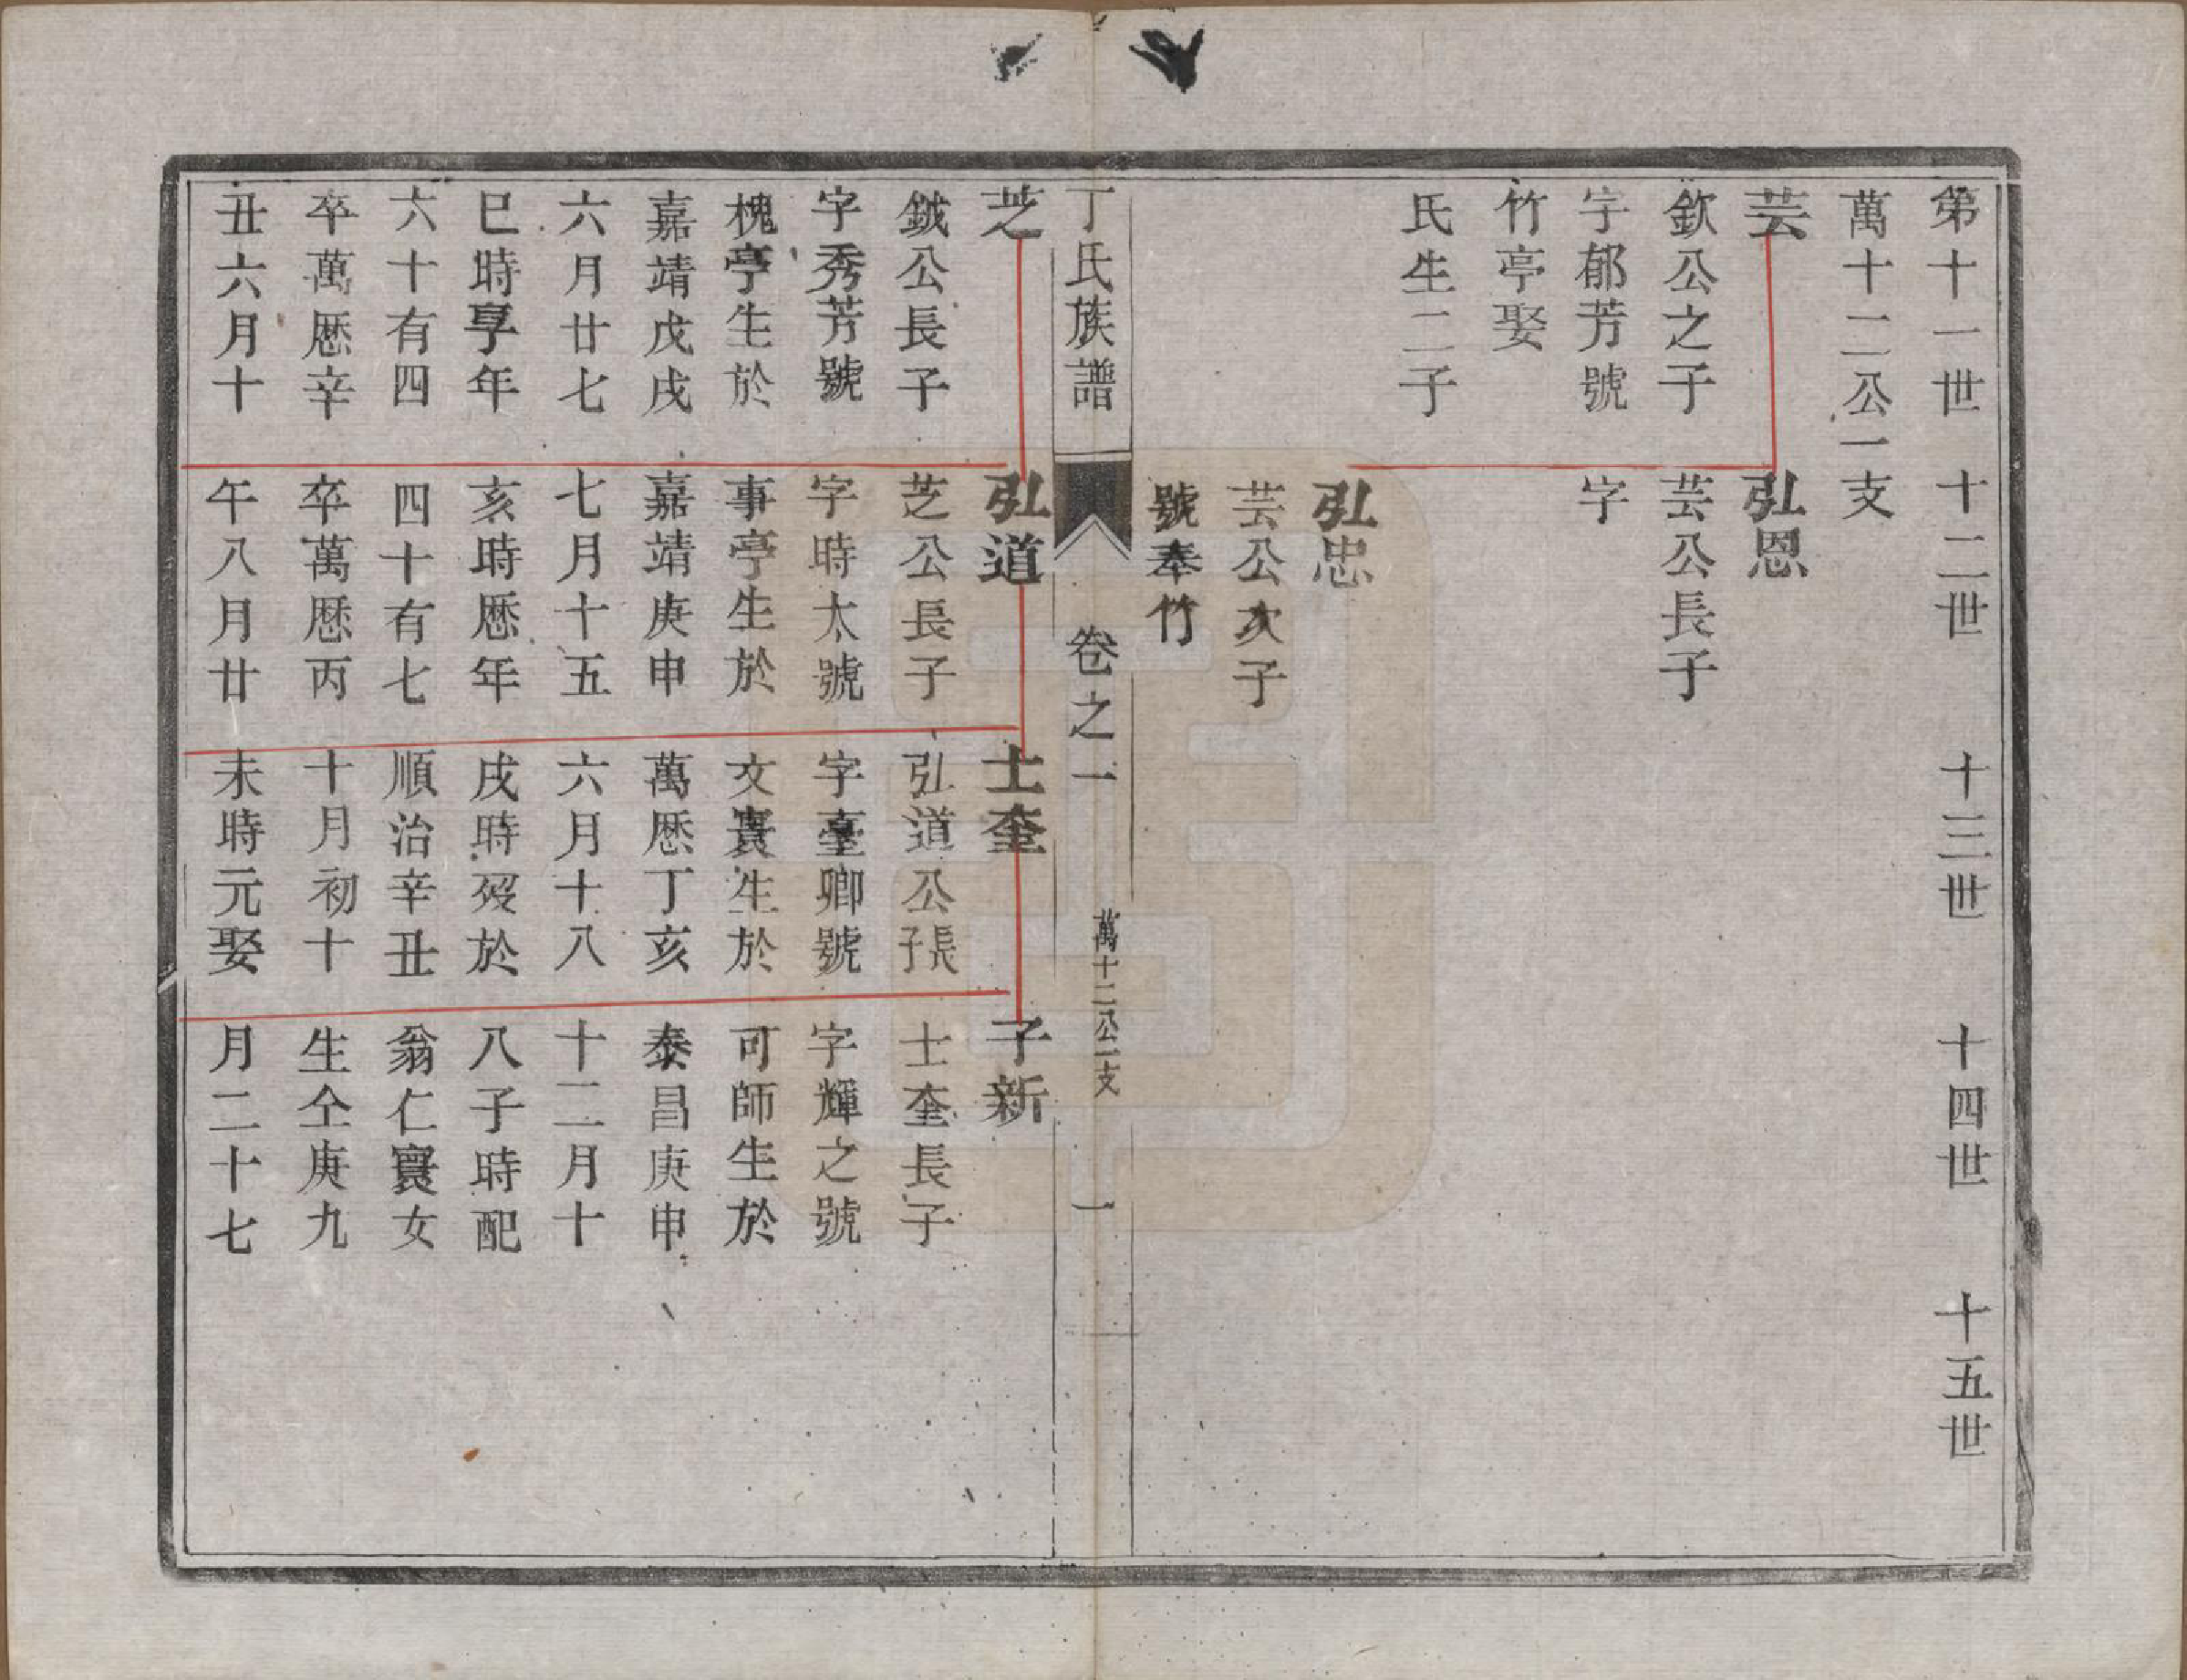 第十一世　十二世　十三世　十四世　十五世
萬十二公一支
芸
欽公之子
字郁芳號
竹亭娶
氏生二子
弘恩
芸公長子
字
弘忠
芸公次子
號奉竹
丁氏族譜
卷之一
萬十二公一支
一
芝
鉞公長子
字秀芳號
槐亭生於
嘉靖戊戌
六月廿七
巳時享年
六十有四
卒萬曆辛
丑六月十
弘道
芝公長子
字時太號
事亭生於
嘉靖庚申
七月十五
亥時曆年
四十有七
卒萬曆丙
午八月廿
士奎
弘道公長子
字臺卿號
文寰生於
萬曆丁亥
六月十八
戌時歿於
順治辛丑
十月初十
未時元娶
子新
士奎長子
字輝之號
可師生於
泰昌庚申
十二月十
八子時配
翁仁寰女
生仝庚九
月二十七